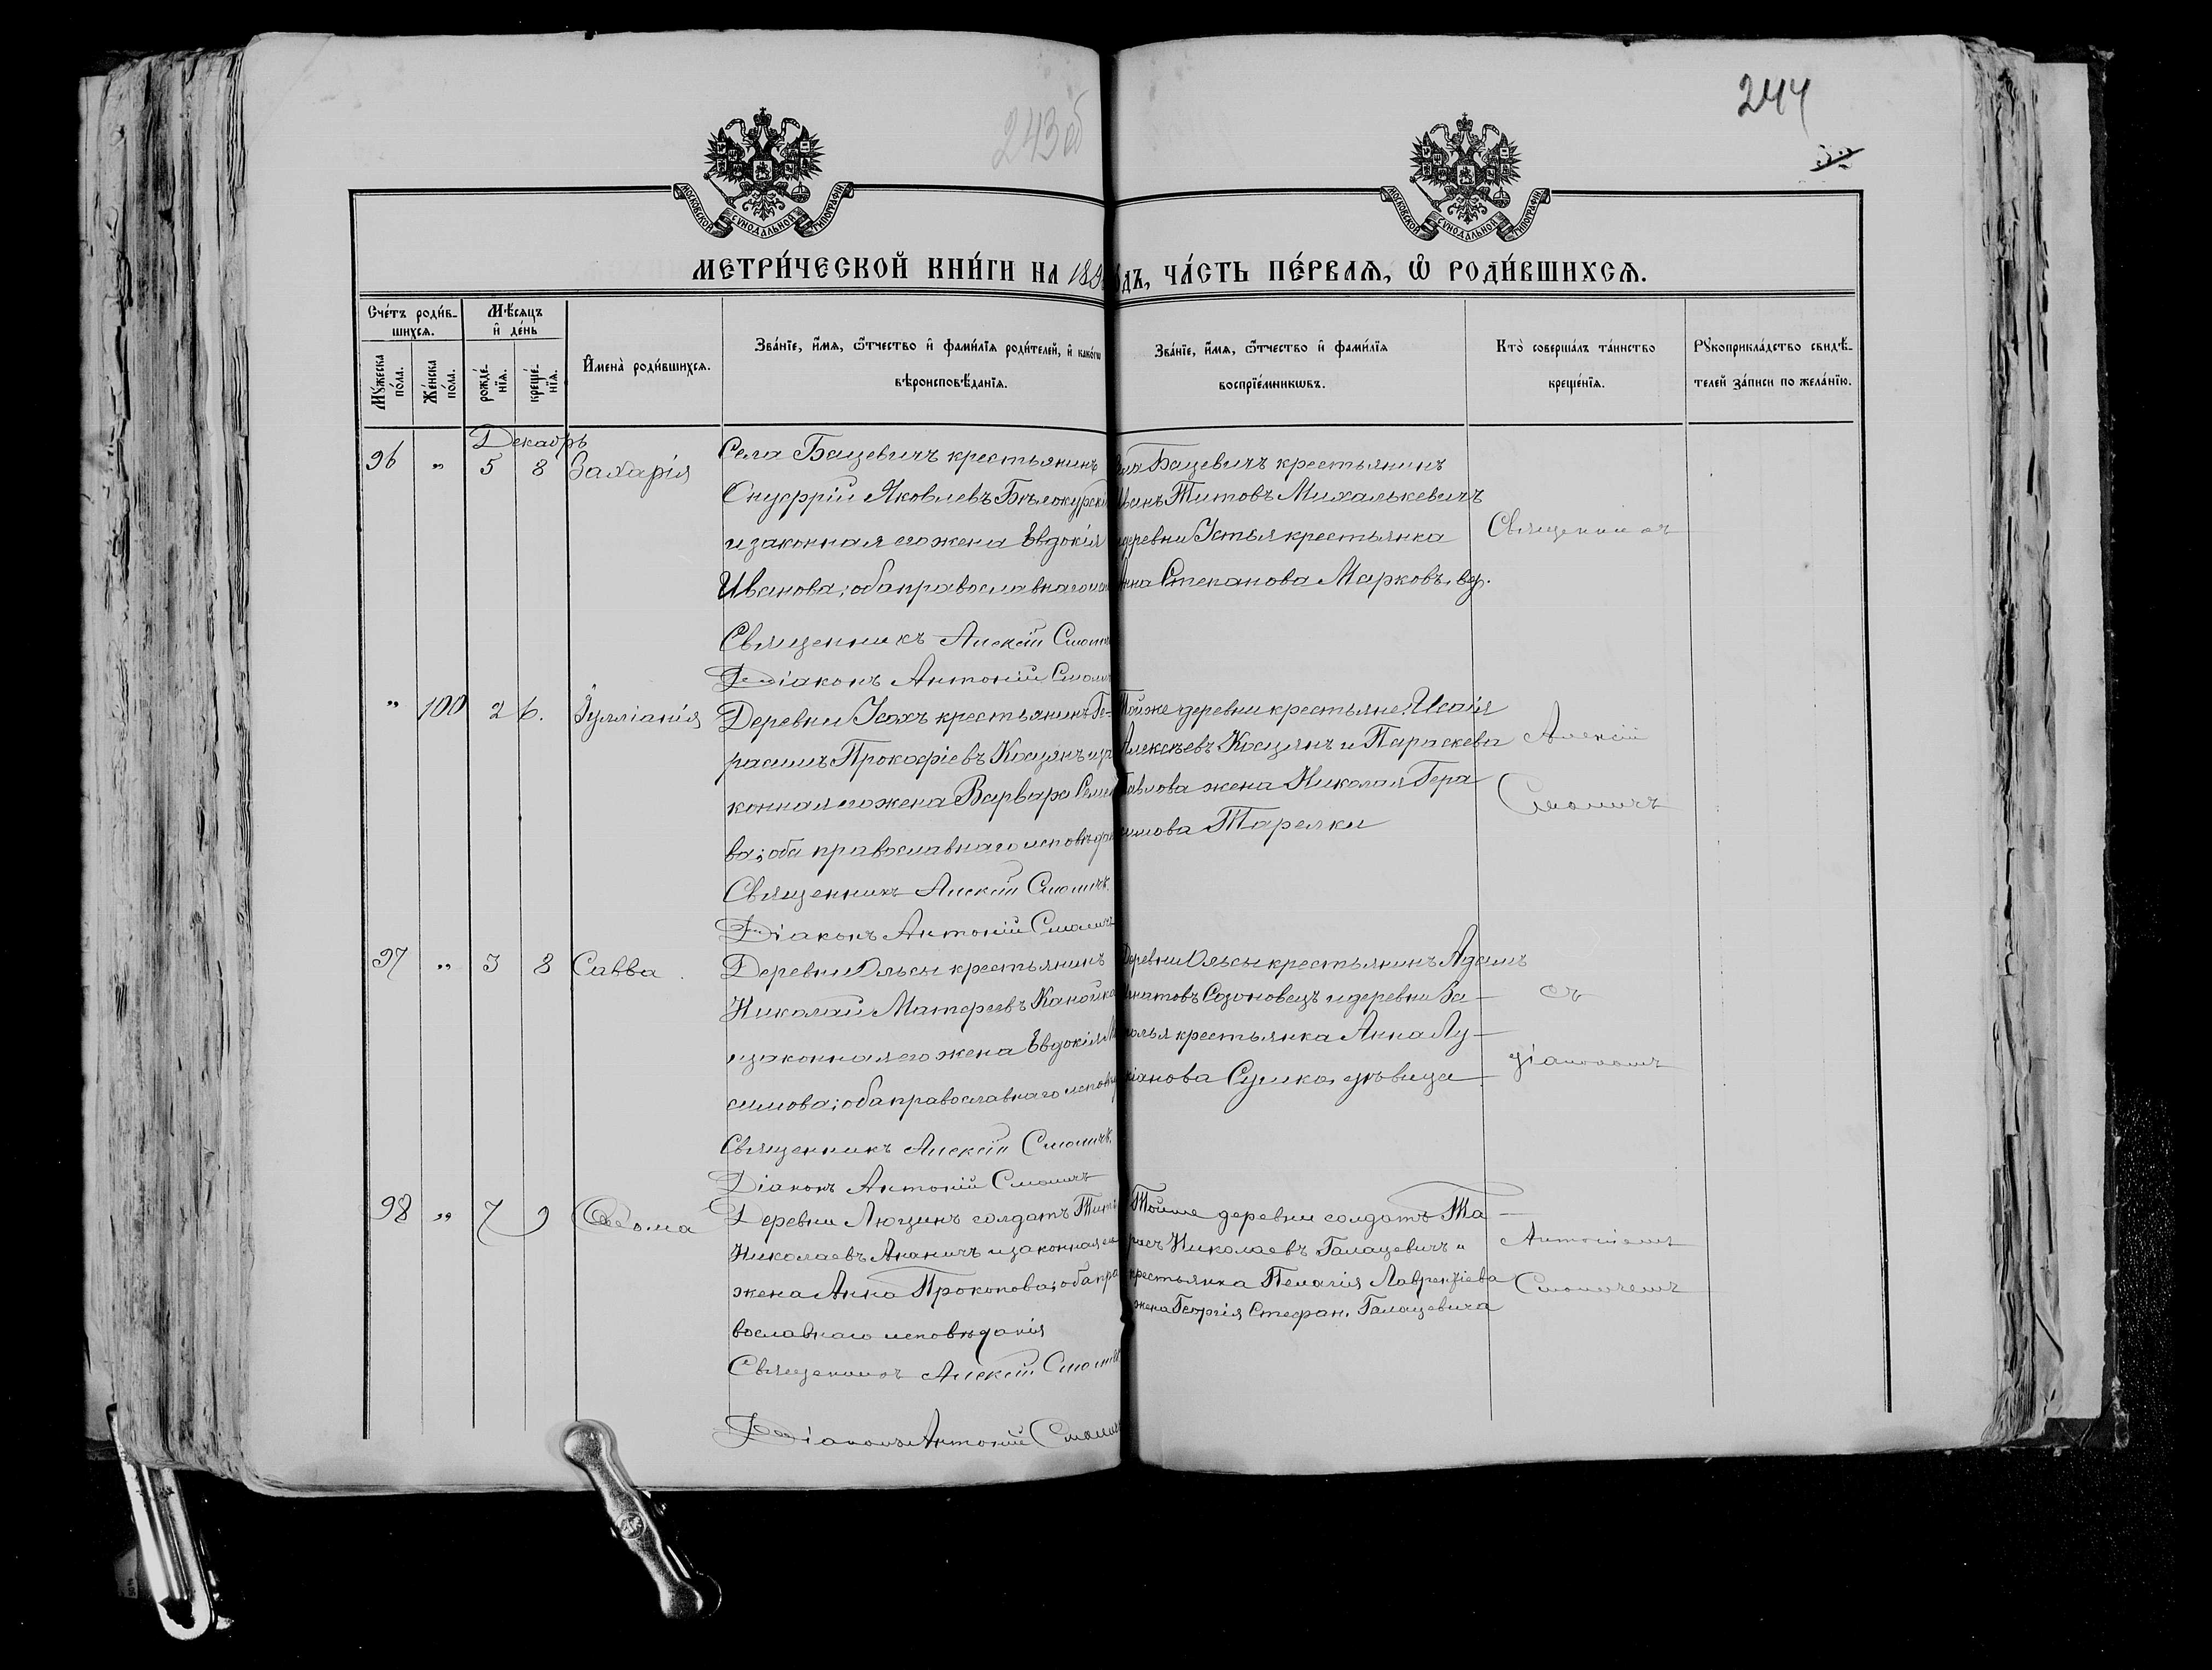 243 об
244
МОСКОВСКОЙ СѴНОДАЛЬНОЙ ТИПОГРАФІИ
МОСКОВСКОЙ СѴНОДАЛЬНОЙ ТИПОГРАФІИ
МЕТРИ́ЧЕСКОЙ КНИ́ГИ НА 189 ДЪ, ЧА́СТЬ ПЕ́РВАѦ, Ѽ РОДИ́ВШИХСѦ.
Сче́тъ роди́в-
шихсѧ.
Мꙋ́жеска по́ла.
Же́нска по́ла.
Мѣ́сѧцъ
и҆ де́нь
рожде́-
нїѧ.
креще́-
нїѧ.
И҆мена̀ роди́вшихсѧ.
Зва́нїе, и҆́мѧ, ѻ҆́тчество и҆ фами́лїѧ роди́телей, и҆ како́гѡ
вѣроисповѣ́данїѧ.
Зва́нїе, и҆́мѧ, ѻ҆́тчество и҆ фами́лїѧ
воспрїе́мникѡвъ.
Кто̀ соверша́лъ та́инство
креще́нїѧ.
Рꙋкоприкла́дство свидѣ́-
телей за́писи по жела́нїю.
Декабрь
96 " 5 8 Захарія
Села Бацевичъ крестьянинъ
Онуфрій Яковлевъ Бѣлокурскій
и законная его жена Евдокія
Иванова; оба православнаго
Священникъ Алексій Смоличъ
Діаконъ Антоній Смоличъ
Села Бацевичъ крестьянинъ
Иванъ Титовъ Михалькевичъ
деревни Устья крестьянка
Анна Степанова Марковъ, вд.
Священникъ
" 100 2 6. Іулліанія
Деревни Усохъ крестьянинъ Ге-
расимъ Прокофіевъ Коцянъ и за
конная его жена Варвара
ва; оба православнаго исповѣдан
Священникъ Алексій Смоличъ.
Діаконъ Антоній Смоличъ
Той же деревни крестьяне: Исаія
Алексѣевъ Коцянъ и Параскева
Павлова жена Николая Гера
симова Тарелки
Алексій
Смоличъ
97 " 3 8 Савва
Деревни Ольсы крестьянинъ
Николай Матфеевъ Канойка
и законная его жена Евдокія
симова; оба православнаго исповѣд
Священникъ Алексій Смоличъ.
Діаконъ Антоній Смоличъ
Деревни Ольсы крестьянинъ Адамъ
Игнатовъ Созоновецъ и деревни За-
полья крестьянка Анна Лу-
кіанова Сушка, дѣвица
съ
діакономъ
98 " 7 9 Ѳома
Деревни Люцинъ солдатъ Титъ
Николаевъ Ананичъ и законная его
жена Анна Прокопова; оба пра
вославнаго исповѣданія
Священникъ Алексій Смоличъ
Діаконъ Антоній Смоличъ
Той же деревни солдатъ Та-
расъ Николаевъ Галацевичъ и
крестьянка Пелагія Лаврентіева
жена Георгія Стефан. Галацевича
Антоніемъ
Смоличемъ